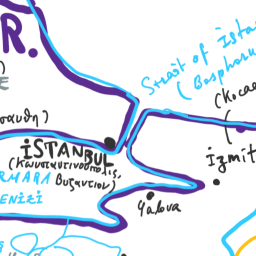 R.
Strait of İsta
(Bosphoru
(Kocae
σαυθη)
İSTANBUL
(Κωνσταντινούπολις,
Βυζαντιον)
RMARA
ENİZİ
İzmit
Yalova